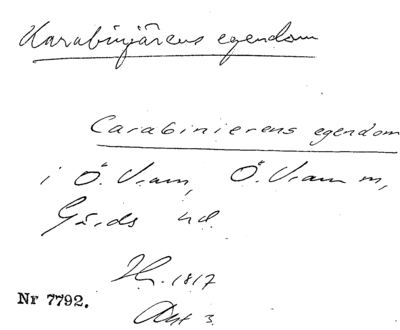 Karabinjärens egendom
Carabinierens egendom
i Ö. Vram, Ö. Vram sn,
Gärds hd.
Hr. 1817
Akt 3.
Nr 7792.